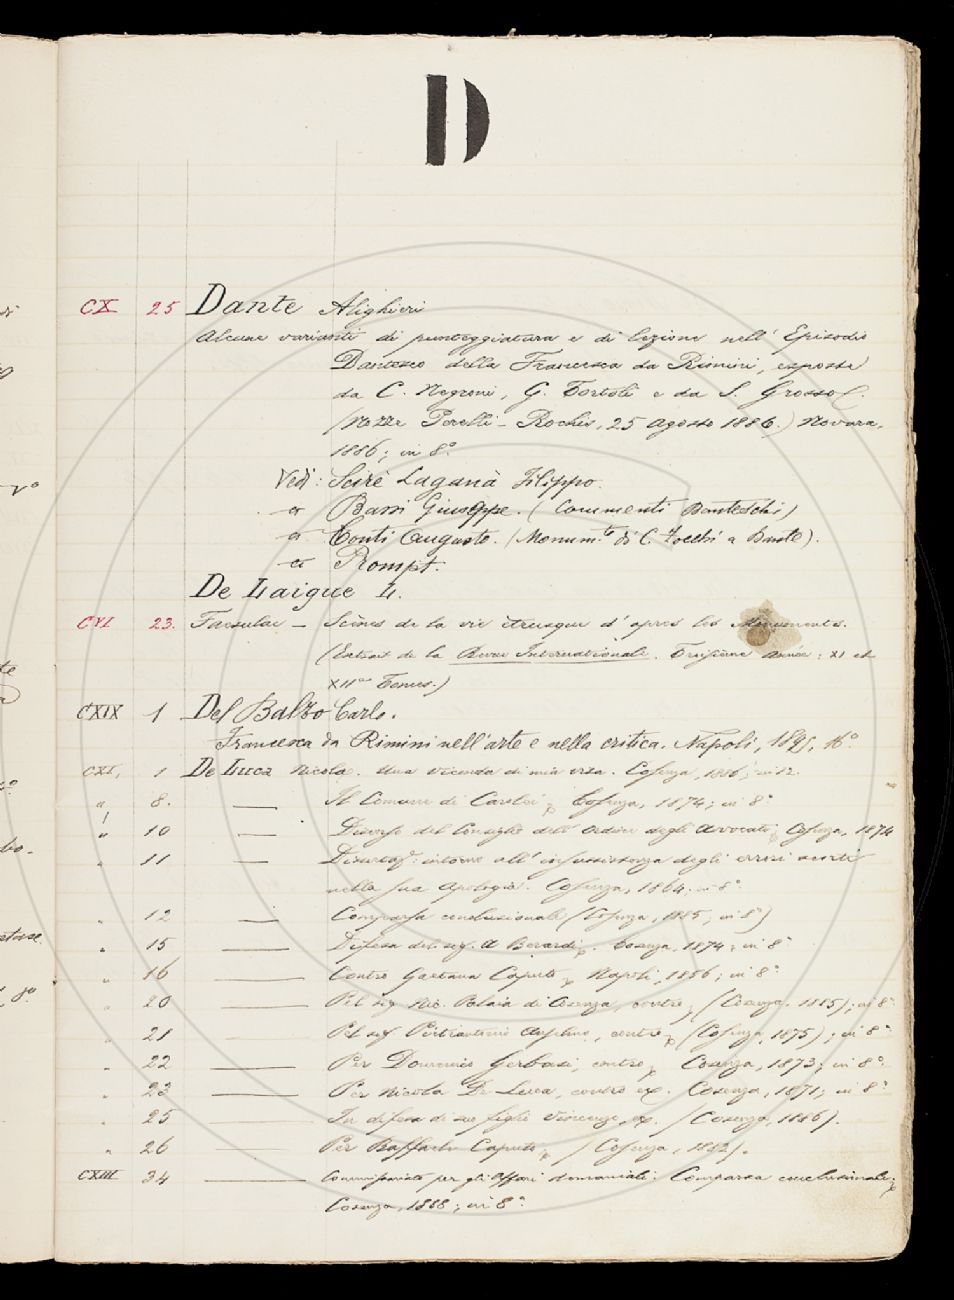 D
CX 25 Dante Alighieri
Alcune varianti di punteggiatura e di lezione nell' Episodio
Dantesco della Francesca da Rimini, esposte
da C. Negroni, G. Tortoli e da S. Grosso.
(Nozze Perelli - Rochis, 25 Agosto 1886.) Novara,
1886; in 8°.
Vedi: Scirè Laganà Filippo.
Bassi Giuseppe. (Commenti Danteschi)
Conti Augusto. (Monum.to di C. Zocchi a Dante).
Prompt.
De Laigue L.
CVI 23. Faesulae - Scènes de la vie étrusque d'apres les Monuments.
(Extrait de la Revue Internationale. Troisième Année: XI et
XII Tomes.)
CXIX 1 Del Balzo Carlo.
Francesca da Rimini nell'arte e nella critica. Napoli, 1895, 16°.
CXI, 1 De Luca Nicola. Una vicenda di mia vita. Cosenza, 1886; in 12.
" 8. — Il Comune di Carolei Cosenza, 1874; in 8°
" 10 — Discorso del Consiglio dell' Ordine degli Avvocati Cosenza, 1874
" 11 — intorno all' insussistenza degli errori
nella sua Apologia. Cosenza, 1864; in 8°.
" 12 — Comparsa conclusionale (Cosenza, 1885; in 8°)
" 15 — Difesa del sig. A Berardi. Cosenza, 1874; in 8°.
" 16 — Contro Gaetana Caputo Napoli, 1856; in 8°.
" 20 — Pel sig. Nic. Palaia di Cosenza, contro (Cosenza, 1885); in 8°
" 21 — Pel sig. contro (Cosenza, 1875); in 8°
" 22 — Per Domenico Gerbasi, contro Cosenza, 1873; in 8°.
" 23 — Per Nicola De Luca, contro Cosenza, 1871; in 8°
" 25 — In difesa di suo figlio Vincenzo, (Cosenza, 1886).
" 26 — Per Raffaele Caputo (Cosenza, 1882).
CXIII 34 — Commissariato per gli Affari demaniali: Comparsa conclusionale
Cosenza, 1888; in 8°.